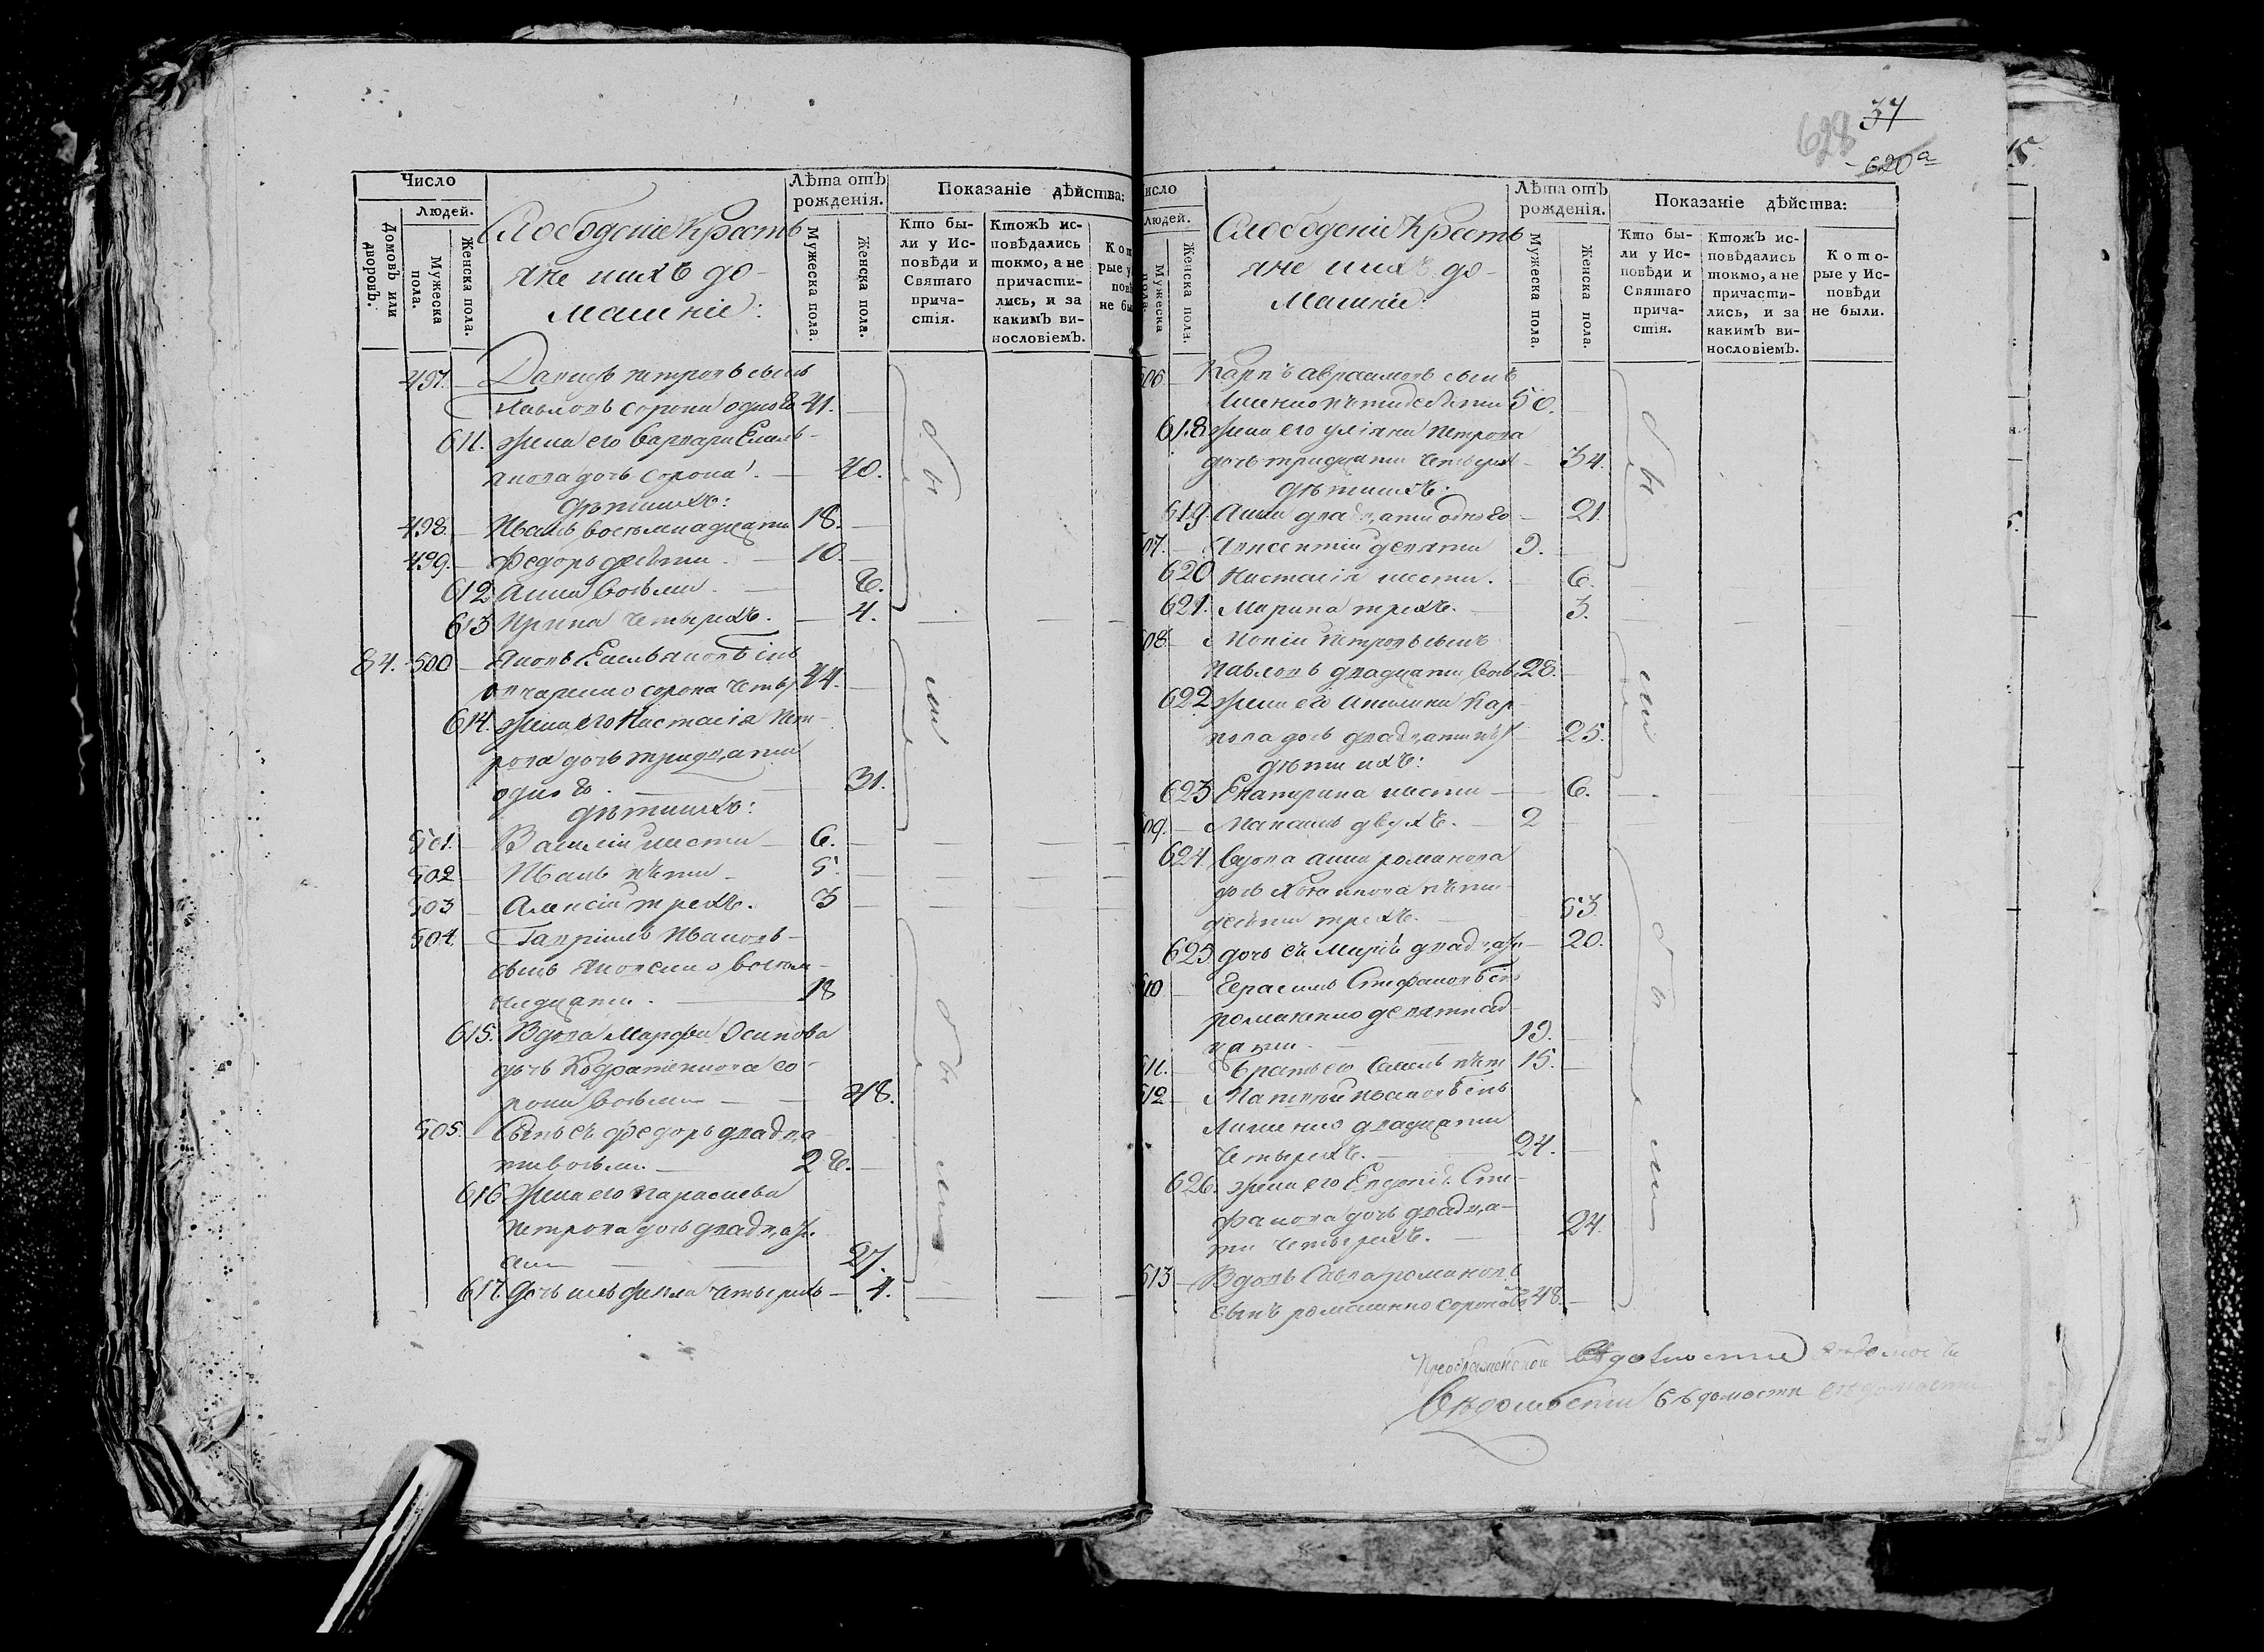 Число
Людей.
Домовъ или дворовъ.
Мужеска пола.
Женска пола.
Слободскіе Кресть
яне ихъ до-
машніе:
Лѣта отъ рожденія.
Мужеска пола.
Женска пола.
Показаніе дѣйства:
Кто бы-
ли у Ис-
повѣди и
Святаго
прича-
стія.
Ктожъ ис-
повѣдались
токмо, а не
причасти-
лись, и за
какимъ ви-
нословіемъ.
497. Данилъ петровъ сынъ
Павловъ сорока одного 41.
611. жена его Варвара Емель-
янова дочь сорока. 40.
дѣти ихъ:
498. Иванъ восемнадцати 18.
499. Федоръ десяти 10.
612 Анна восьми 8.
613 Ирина четырехъ. 4.
84. 500 Яковъ Емельяновъ снъ
овчаренко сорока четы 44.
614. жена его Настасія Пет-
рова дочь тридцати
одного. 31.
дѣти ихъ:
501. Василій шести 6.
502 Иванъ пяти 5.
503 Алексій трехъ. 3
504. Гавріилъ Ивановъ
сынъ восем-
надцати. 18
615. Вдова Марфа Осипова
дочь Кодратенкова со-
рока восьми 48.
505. Сынъ еъ федоръ двадца
ти восьми. 28.
616 жена его параскева
Петрова дочь двадцати
сми 27.
617. дочь ихъ фекла четырехъ 4.
были
были
37
628
620а
Число
Людей.
Мужеска пола.
Женска пола.
Слободскіе Кресть
яне ихъ до-
машніе:
Лѣта отъ рожденія.
Мужеска пола.
Женска пола.
Показаніе дѣйства:
Кто бы-
ли у Ис-
повѣди и
Святаго
прича-
стія.
Ктожъ ис-
повѣдались
токмо, а не
причасти-
лись, и за
какимъ ви-
нословіемъ.
Кото-
рые у Ис-
повѣди
не были.
506 Карпъ авраамовъ сынъ
пятидесяти 50.
618 жена его уліяна петрова
дочь тридцати четырехъ 34.
дѣти ихъ:
619. Анна двадцати одного 21.
507. девяти 9.
620 Настасія шести. 6.
621. Марина трехъ. 3.
508 Мокій Петровъ сынъ
Павловъ двадцати восъ 28.
622 жена его акилина Кар-
пова дочь двадцати пят 25.
дѣти ихъ:
623 Екатерина шести 6.
509. двухъ. 2
624 вдова анна романова
дочь пяти-
десяти трехъ. 53.
625 дочь еъ Марія двадцати 20.
510 Герасимъ Стефановъ снъ
романенко девятнад-
цати 19.
511. братъ его пят 15.
512 Матвѣй ивановъ снъ
двадцати
четырехъ. 24.
626. жена его Евдокія Сте-
фанова дочь двадца-
ти четырехъ. 24.
513 Вдовъ Савва романовъ
сынъ романенко сорока 48.
были
были
Преображенской Вѣдомости
Вѣдомости вѣдомости вѣдомости